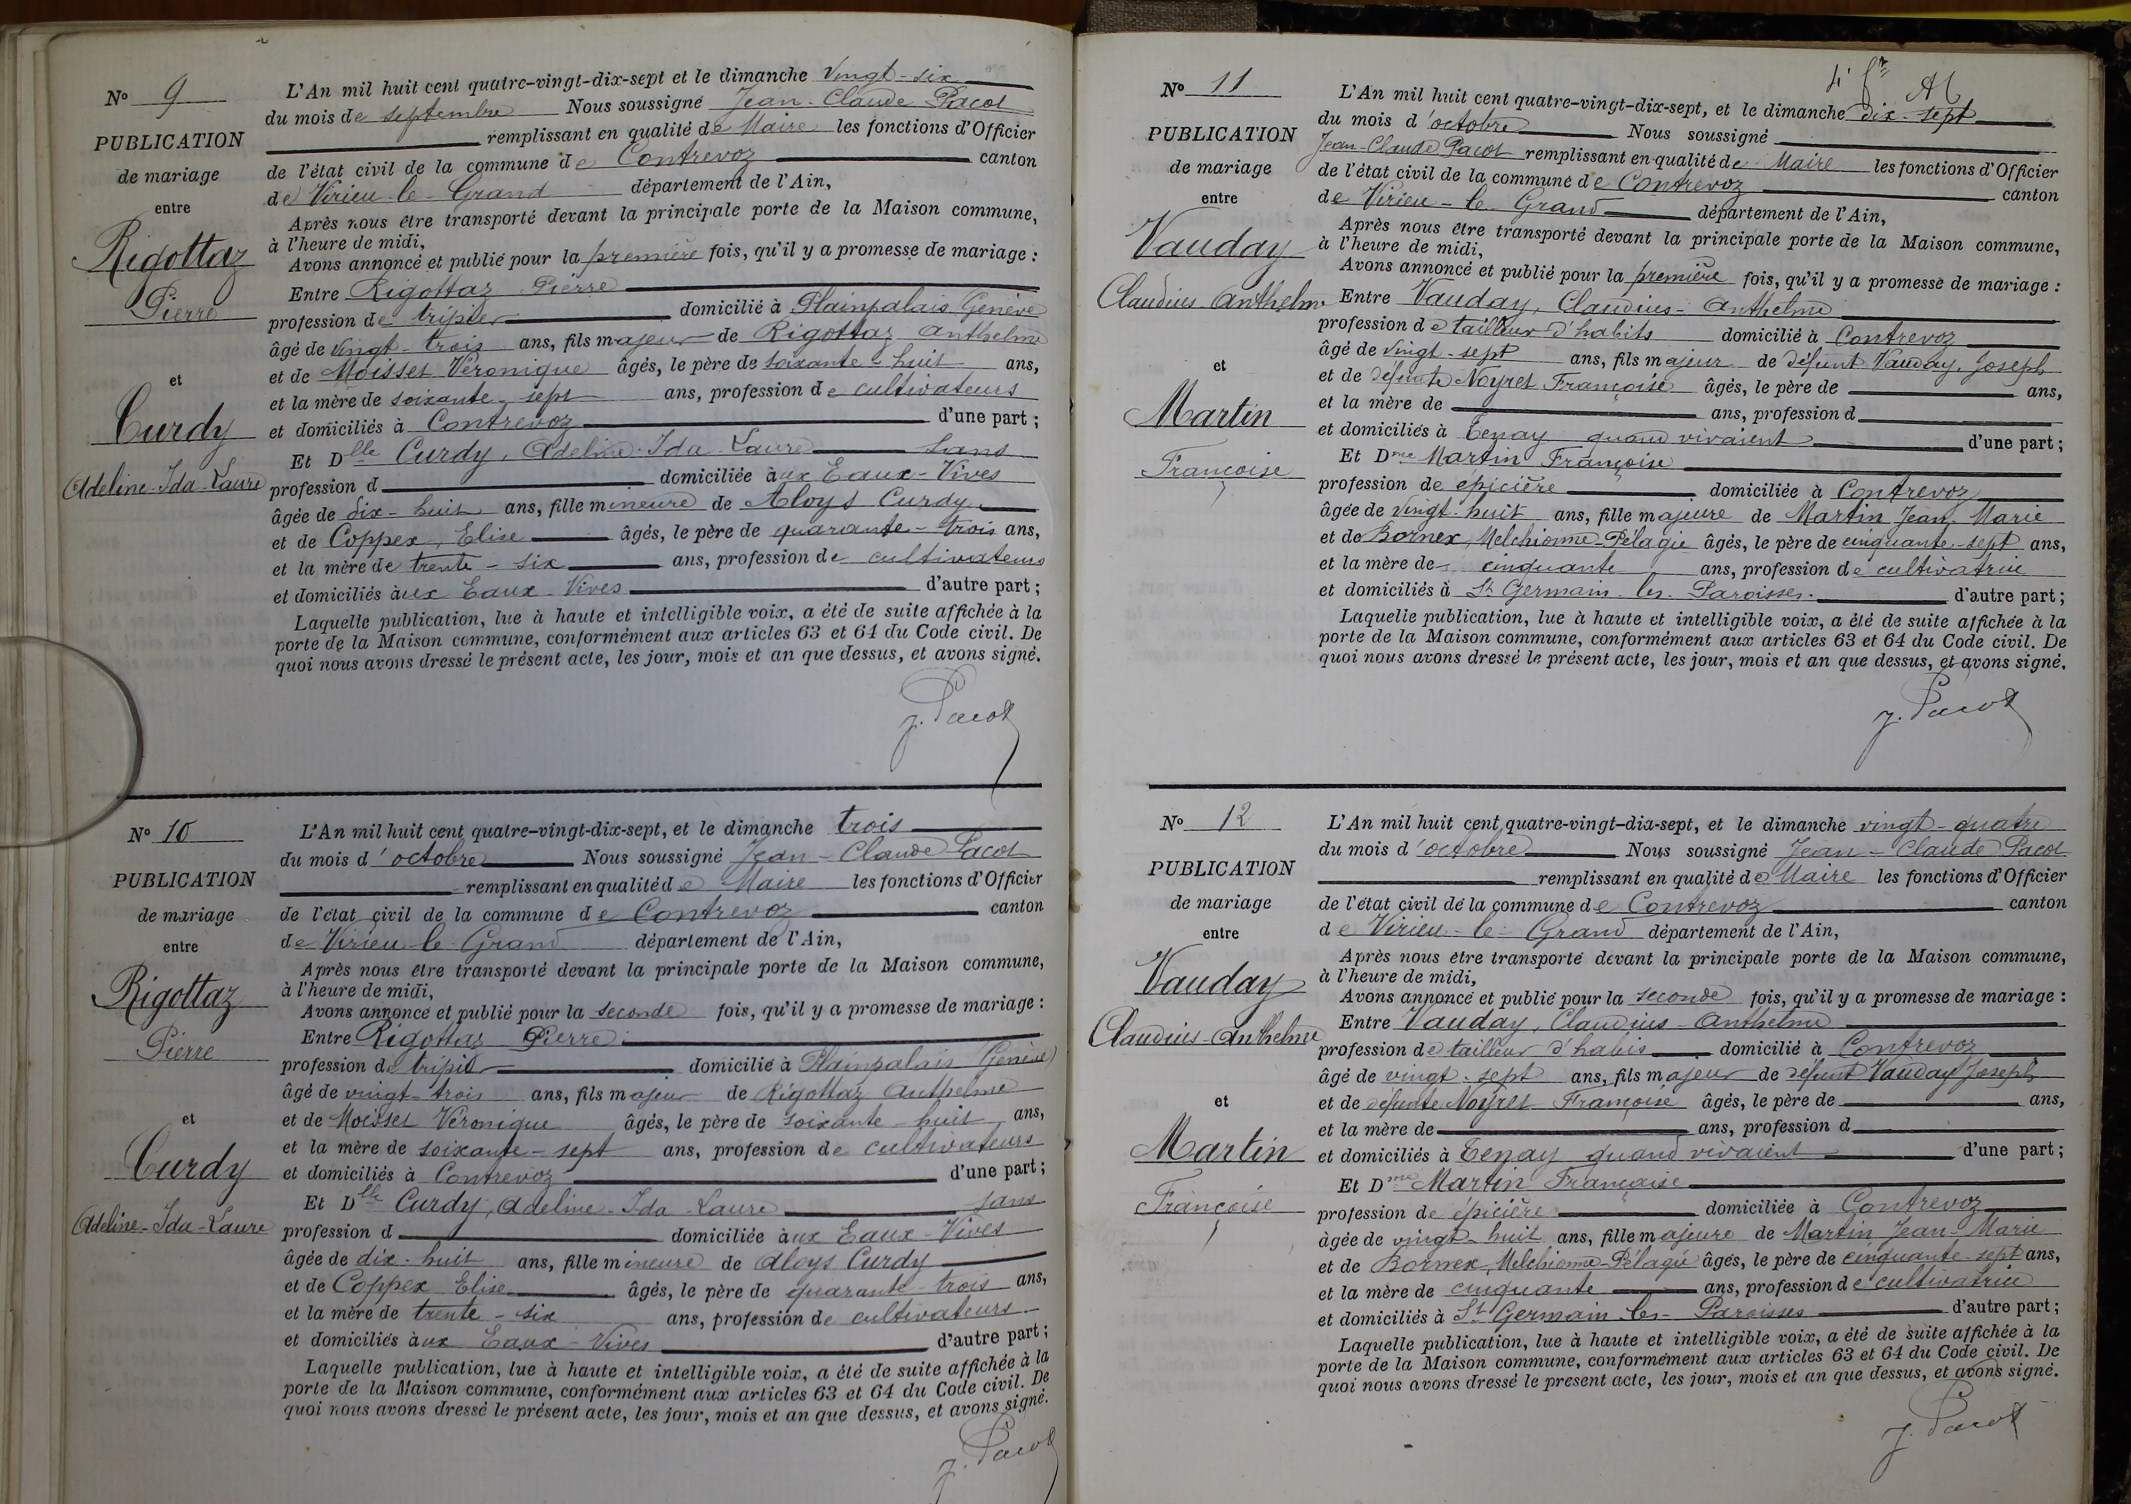 N° 9
PUBLICATION
de mariage
entre
Rigottaz
Pierre
et
Curdy
Adeline-Ida-Laure
L'An mil huit cent quatre-vingt-dix-sept et le dimanche vingt-six
du mois de septembre Nous soussigné Jean-Claude Pacot
remplissant en qualité de Maire les fonctions d'Officier
de l'état civil de la commune de Contrevoz canton
de Virieu-le-Grand département de l'Ain,
Après nous être transporté devant la principale porte de la Maison commune,
à l'heure de midi,
Avons annoncé et publié pour la première fois, qu'il y a promesse de mariage :
Entre Rigottaz Pierre
profession de tripier domicilié à Plainpalais (Genève
âgé de vingt-trois ans, fils majeur de Rigottaz Anthelme
et de Moisset Véronique âgés, le père de soixante-huit ans,
et la mère de soixante-sept ans, profession de cultivateurs
et domiciliés à Contrevoz d'une part ;
Et Dlle Curdy, Adeline-Ida-Laure sans
profession d domiciliée aux Eaux-Vives
âgée de dix-huit ans, fille mineure de Aloys Curdy
et de Coppex, Elise âgés, le père de quarante-trois ans,
et la mère de trente-six ans, profession de cultivateurs
et domiciliés aux Eaux-Vives d'autre part ;
Laquelle publication, lue à haute et intelligible voix, a été de suite affichée à la
porte de la Maison commune, conformément aux articles 63 et 64 du Code civil. De
quoi nous avons dressé le présent acte, les jour, mois et an que dessus, et avons signé.
J. Pacot
N° 10
PUBLICATION
de mariage
entre
Rigottaz
Pierre
et
Curdy
Adeline-Ida-Laure
L'An mil huit cent quatre-vingt-dix-sept, et le dimanche trois
du mois d'octobre Nous soussigné Jean-Claude Pacot
remplissant en qualité de Maire les fonctions d'Officier
de l'état civil de la commune de Contrevoz canton
de Virieu-le-Grand département de l'Ain,
Après nous être transporté devant la principale porte de la Maison commune,
à l'heure de midi,
Avons annoncé et publié pour la seconde fois, qu'il y a promesse de mariage :
Entre Rigottaz Pierre
profession de tripier domicilié à Plainpalais (Genève)
âgé de vingt-trois ans, fils majeur de Rigottaz Anthelme
et de Moisset Véronique âgés, le père de soixante-huit ans,
et la mère de soixante-sept ans, profession de cultivateurs
et domiciliés à Contrevoz d'une part ;
Et Dlle Curdy, Adeline-Ida-Laure sans
profession d domiciliée aux Eaux-Vives
âgée de dix-huit ans, fille mineure de Aloys Curdy
et de Coppex Elise âgés, le père de quarante-trois ans,
et la mère de trente-six ans, profession de cultivateurs
et domiciliés aux Eaux-Vives d'autre part ;
Laquelle publication, lue à haute et intelligible voix, a été de suite affichée à la
porte de la Maison commune, conformément aux articles 63 et 64 du Code civil. De
quoi nous avons dressé le présent acte, les jour, mois et an que dessus, et avons signé.
J. Pacot
N° 11
PUBLICATION
de mariage
entre
Vauday
Claudius Anthelme
et
Martin
Françoise
L'An mil huit cent quatre-vingt-dix-sept, et le dimanche dix-sept
du mois d'octobre Nous soussigné
Jean-Claude Pacot remplissant en qualité de Maire les fonctions d'Officier
de l'état civil de la commune de Contrevoz canton
de Virieu-le-Grand département de l'Ain,
Après nous être transporté devant la principale porte de la Maison commune,
à l'heure de midi,
Avons annoncé et publié pour la première fois, qu'il y a promesse de mariage :
Entre Vauday, Claudius-Anthelme
profession de tailleur d'habits domicilié à Contrevoz
âgé de vingt-sept ans, fils majeur de défunt Vauday, Joseph
et de défunte Noyret Françoise âgés, le père de ans,
et la mère de ans, profession d
et domiciliés à Tenay quand vivaient d'une part ;
Et Dme Martin Françoise
profession de épicière domiciliée à Contrevoz
âgée de vingt-huit ans, fille majeure de Martin Jean-Marie
et de Bornex, Melchionne-Pélagie âgés, le père de cinquante-sept ans,
et la mère de cinquante ans, profession de cultivatrice
et domiciliés à St Germain-les-Paroisses. d'autre part ;
Laquelle publication, lue à haute et intelligible voix, a été de suite affichée à la
porte de la Maison commune, conformément aux articles 63 et 64 du Code civil. De
quoi nous avons dressé le présent acte, les jour, mois et an que dessus, et avons signé.
J. Pacot
N° 12
PUBLICATION
de mariage
entre
Vauday
Claudius-Anthelme
et
Martin
Françoise
L'An mil huit cent quatre-vingt-dix-sept, et le dimanche vingt-quatre
du mois d'octobre Nous soussigné Jean-Claude Pacot
remplissant en qualité de Maire les fonctions d'Officier
de l'état civil de la commune de Contrevoz canton
de Virieu-le-Grand département de l'Ain,
Après nous être transporté devant la principale porte de la Maison commune,
à l'heure de midi,
Avons annoncé et publié pour la seconde fois, qu'il y a promesse de mariage :
Entre Vauday, Claudius-Anthelme
profession de tailleur d'habis domicilié à Contrevoz
âgé de vingt-sept ans, fils majeur de défunt Vauday Joseph
et de défunte Noyret Françoise âgés, le père de ans,
et la mère de ans, profession d
et domiciliés à Tenay quand vivaient d'une part ;
Et Dme Martin Françoise
profession de épicière domiciliée à Contrevoz
âgée de vingt-huit ans, fille majeure de Martin Jean-Marie
et de Bornex, Melchionne-Pélagie âgés, le père de cinquante-sept ans,
et la mère de cinquante ans, profession de cultivatrice
et domiciliés à St Germain-les-Paroisses d'autre part ;
Laquelle publication, lue à haute et intelligible voix, a été de suite affichée à la
porte de la Maison commune, conformément aux articles 63 et 64 du Code civil. De
quoi nous avons dressé le présent acte, les jour, mois et an que dessus, et avons signé.
J. Pacot